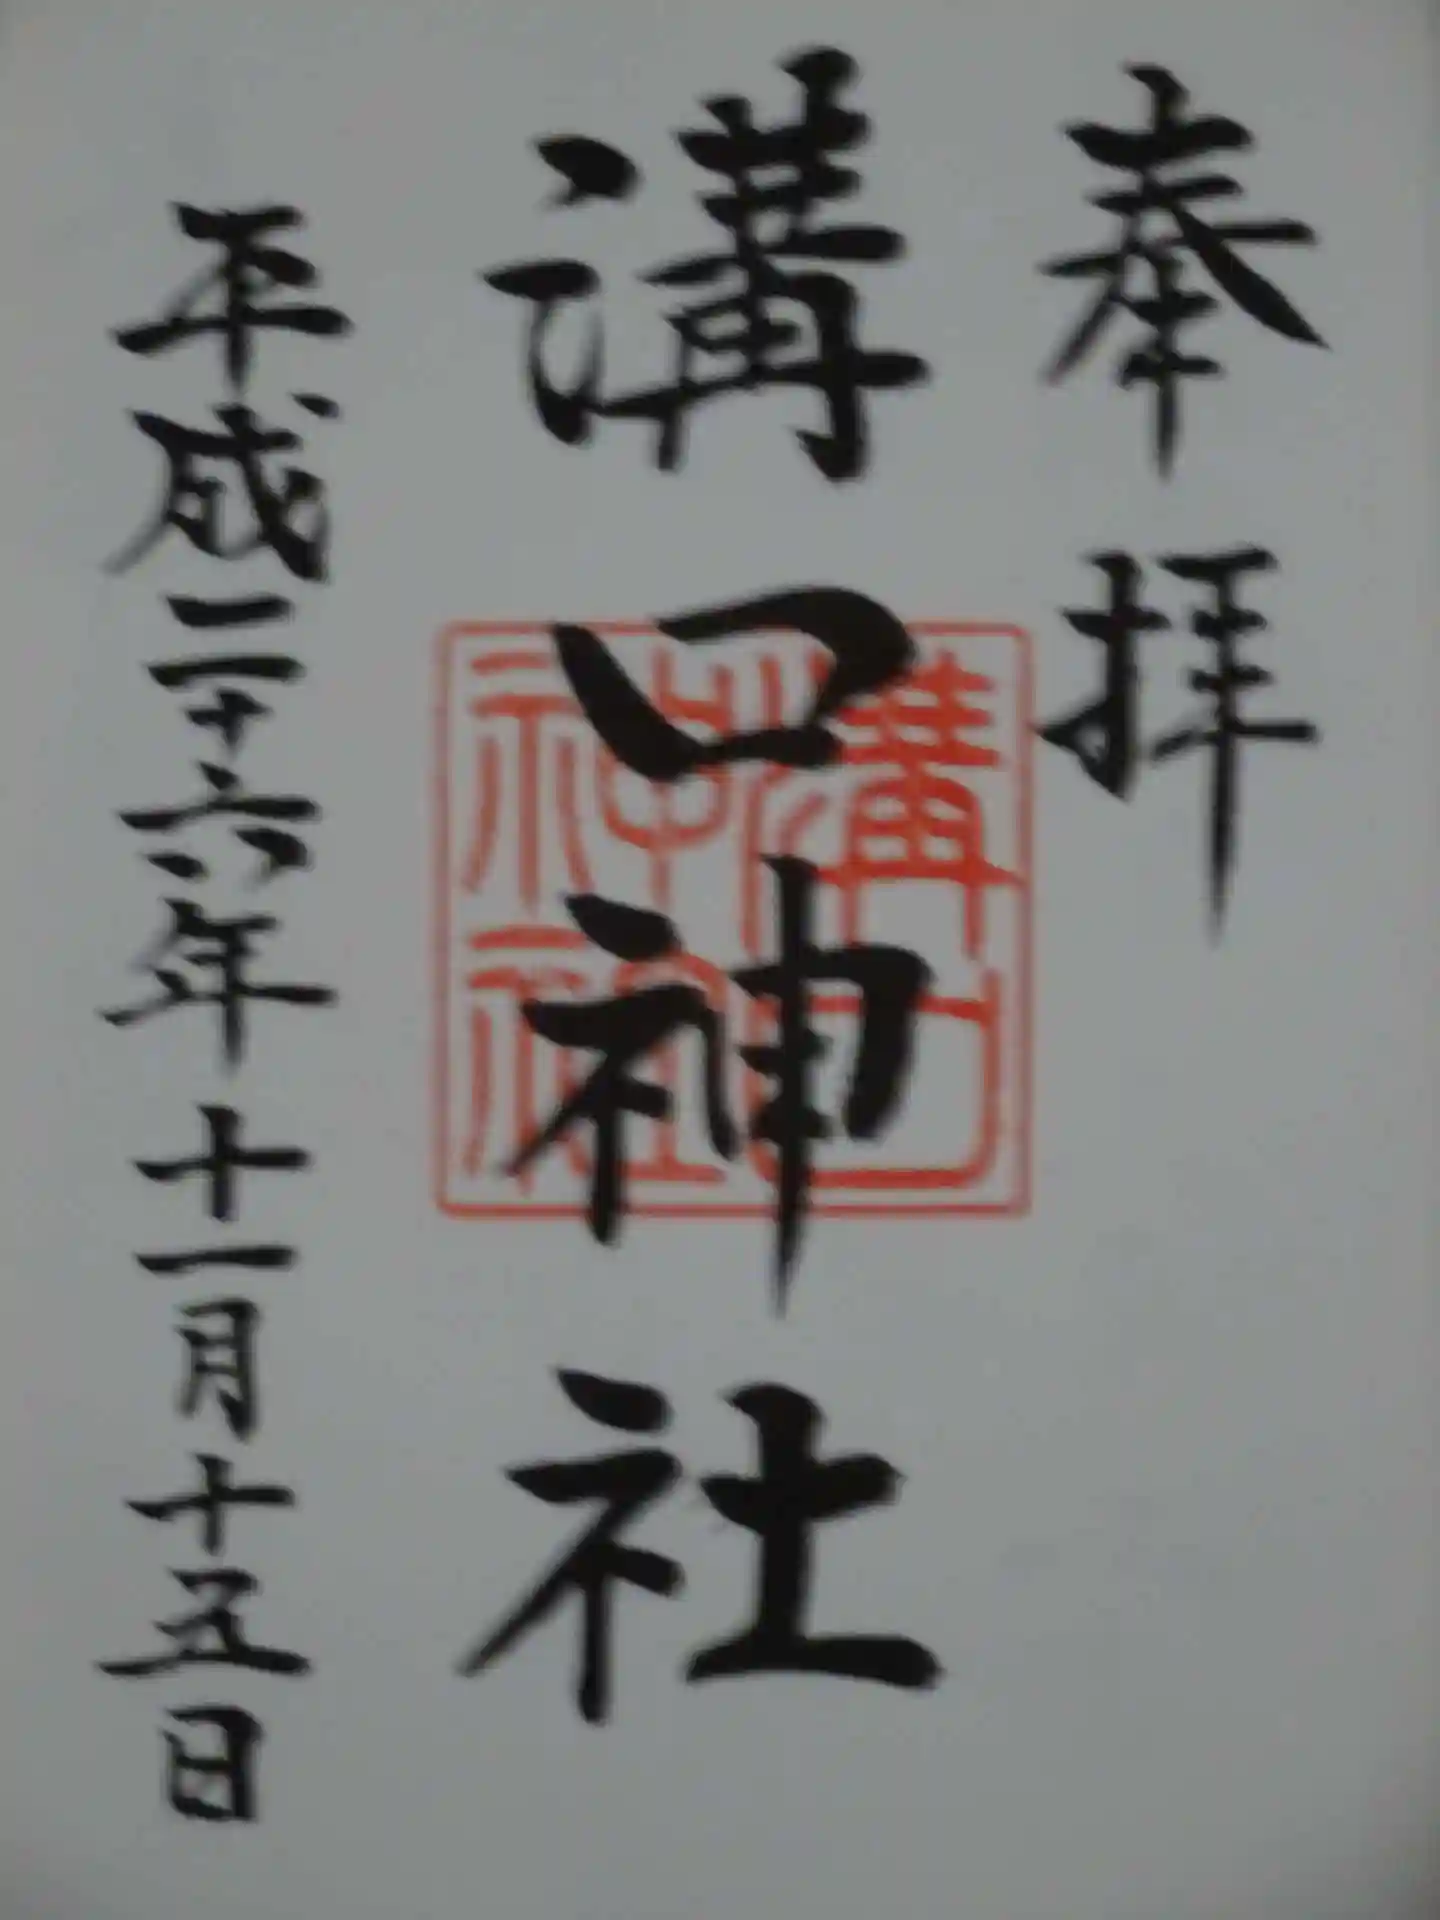 奉拝
溝口神社
溝口
神社
平成二十六年十一月十五日